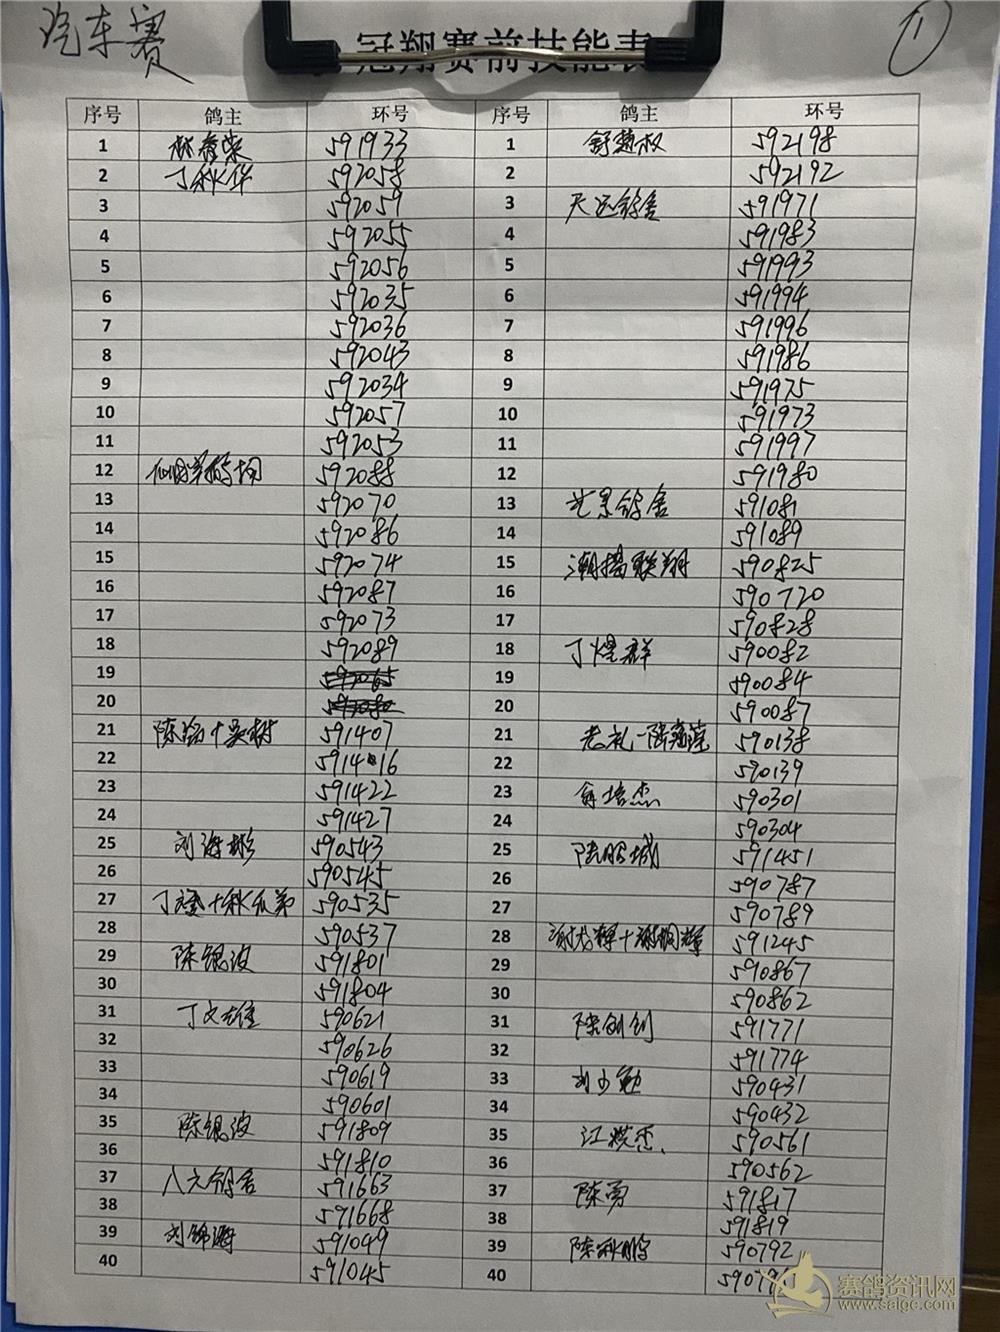 汽车赛
冠翔赛前技能表
1
序号 鸽主 环号 序号 鸽主 环号
1 591933 1 592198
2 丁秋华 592058 2 592192
3 592059 3 天运鸽舍 591971
4 592055 4 591983
5 592056 5 591993
6 592035 6 591994
7 592036 7 591996
8 592043 8 591986
9 592034 9 591975
10 592057 10 591973
11 592053 11 591997
12 592088 12 591980
13 592070 13 艺景鸽舍 591081
14 592086 14 591089
15 592074 15 潮揭联翔 590825
16 592087 16 590720
17 592073 17 590828
18 592089 18 丁煜群 590082
19 19 590084
20 20 590087
21 591407 21 590138
22 591416 22 590139
23 591422 23 590301
24 591427 24 590304
25 刘海彬 590543 25 591451
26 590545 26 590787
27 590535 27 590789
28 590537 28 591245
29 陈锶波 591801 29 590867
30 591804 30 590862
31 丁文雄 590621 31 陈创钊 591771
32 590626 32 591774
33 590619 33 刘少勉 590431
34 590601 34 590432
35 陈锶波 591809 35 590561
36 591810 36 590562
37 八六鸽舍 591663 37 陈勇 591817
38 591668 38 591819
39 刘锦游 591049 39 陈秋鹏 590792
40 591045 40
赛鸽资讯网
www.saige.com